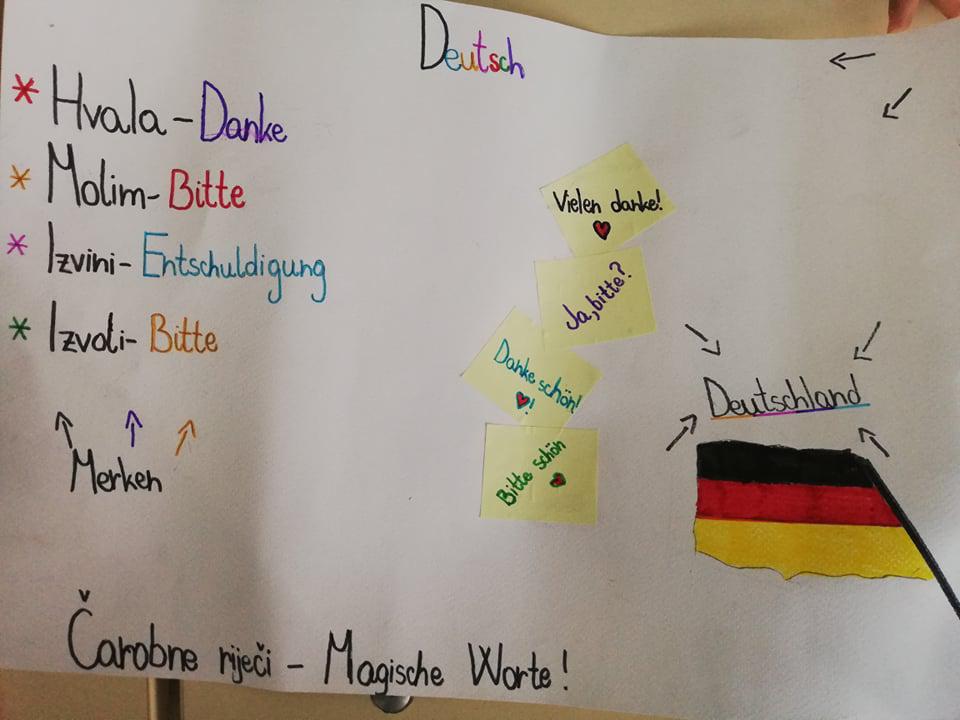 Deutsch
* Hvala - Danke
* Molim - Bitte
* Izvini - Entschuldigung
* Izvoli - Bitte
Merken
Vielen danke!
Ja, bitte?
Danke schön!
!
Bitte schön
Deutschland
Čarobne riječi - Magische Worte!